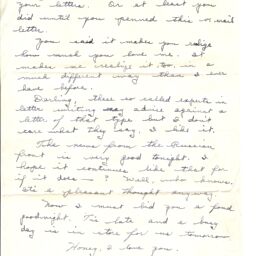 your letters. Or at least you
did until you penned this
letter.
You said it makes you realize
how much you love me. It
makes me realize it too, in a
much different way than I ever
have before.
Darling, these so called experts in
letter writing may advise against a
letter of that type but I don't
care what they say, I like it.
The news from the Russian
front is very good tonight. I
hope it continues like that for
if it does — ? Well, who knows.
It's a pleasant thought anyway.
Now I must bid you a fond
goodnight. Tis late and a busy
day is in store for me tomorrow.
Honey, I love you.